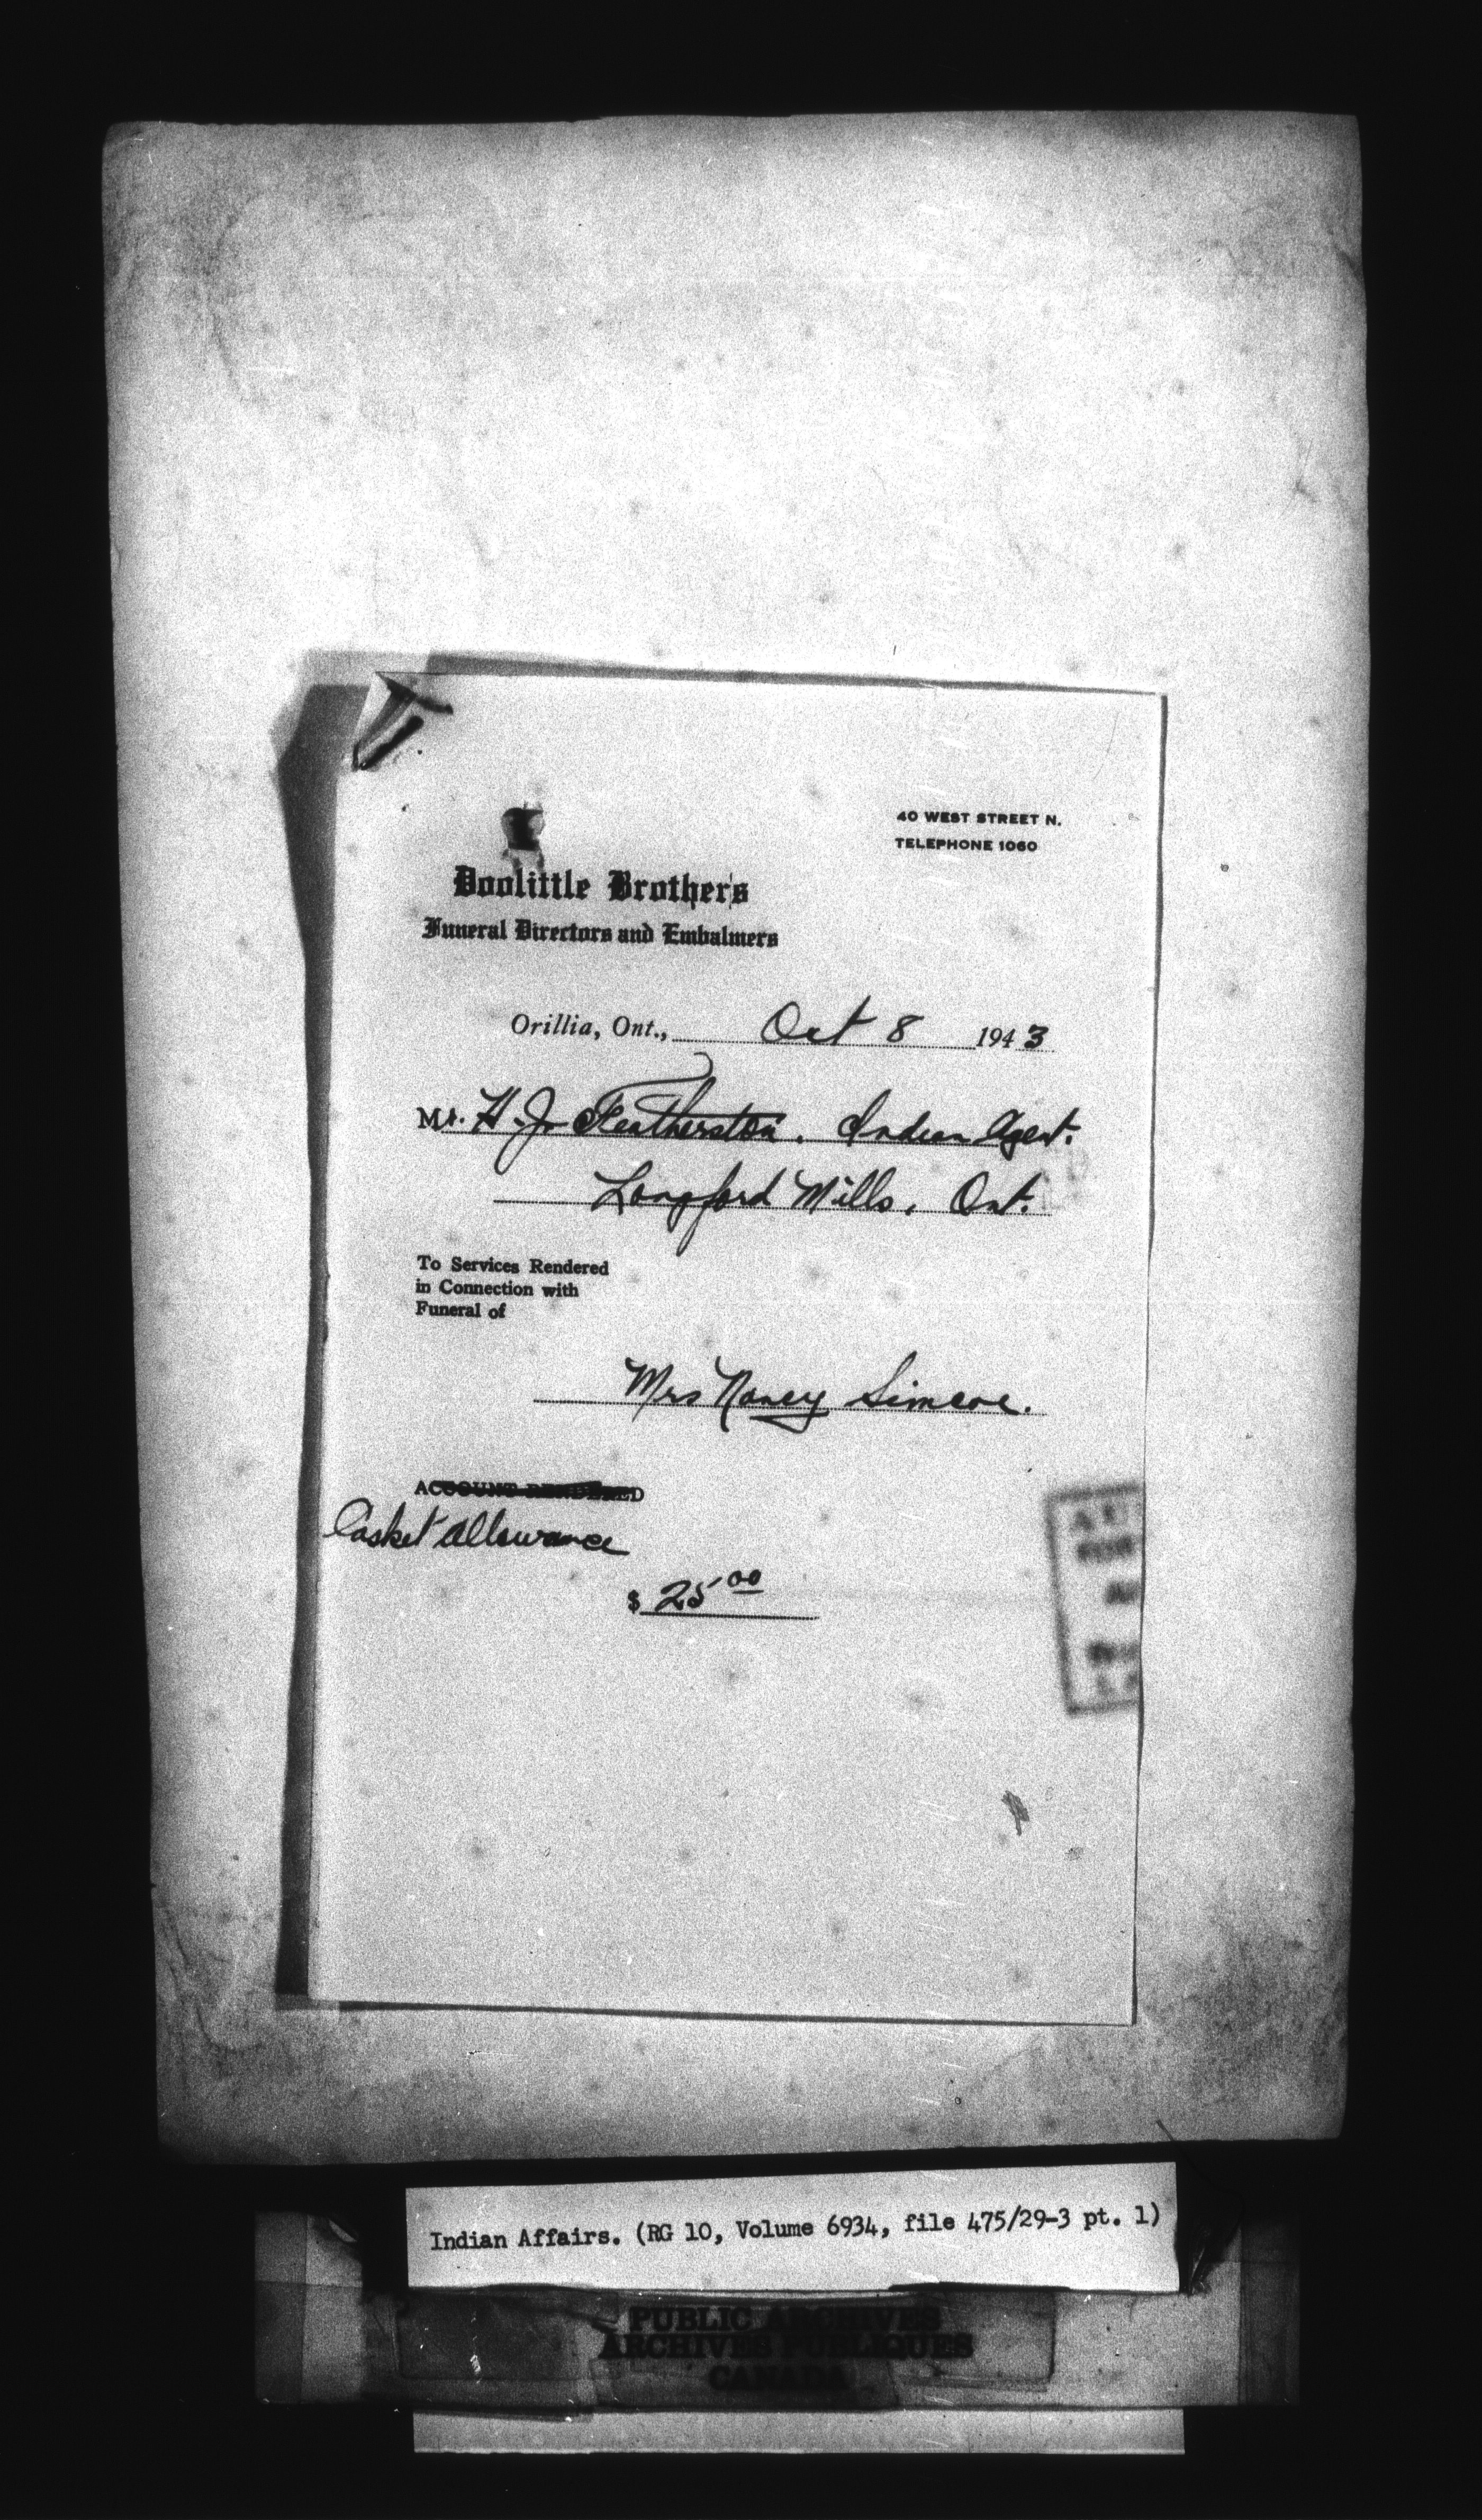 40 WEST STREET N.
TELEPHONE 1060
Doolittle Brothers
Funeral Directors and Embalmers
Orillia, Ont., Oct 8 1943
Mr. H. J. Featherston. Indian Agent.
Longford Mills, Ont.
To Services Rendered
in Connection with
Funeral of
Mrs Nancy Simcoe.
ACCOUNT RENDERED
Casket Allowance
$ 25 00
Indian Affairs. (RG 10, Volume 6934, file 475/29-3 pt. 1)
PUBLIC ARCHIVES
ARCHIVES PUBLIQUES
CANADA